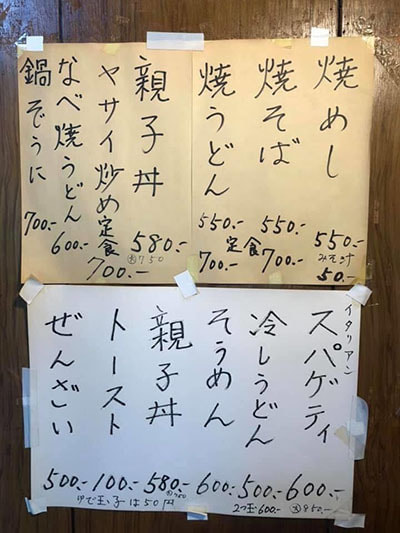 焼めし 550.-
みそ汁 50.-
焼そば 550.-
焼うどん 550.-
定食 700.- 700.-
親子丼 580.-
大750
ヤサイ炒め定食 700.-
なべ焼うどん 600.-
鍋ぞうに 700.-
イタリアン
スパゲティ 600.-
大850.-
冷しうどん 500.-
2つ玉600.-
そうめん 600.-
親子丼 580.-
大750
トースト 100.-
ゆで玉子は50円
ぜんざい 500.-